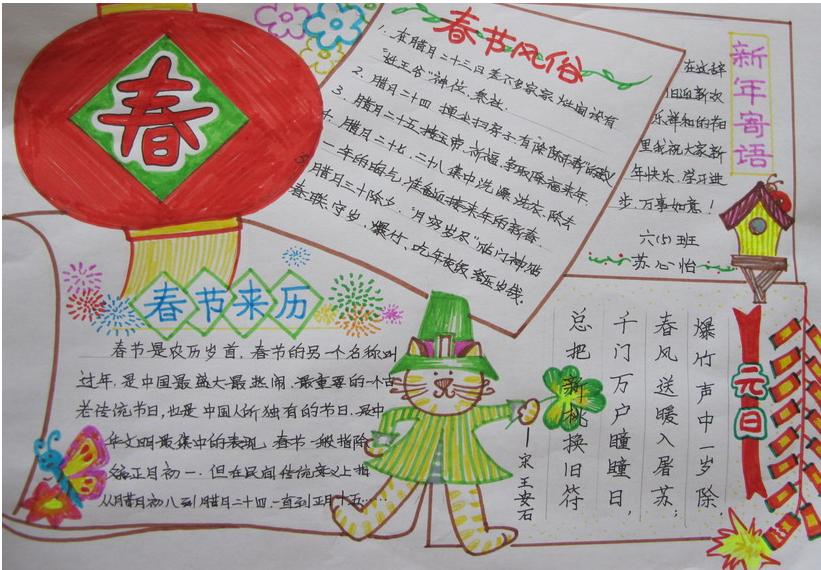 春
春节风俗
1. 在腊月二十三日差不多家家灶间设有
王爷"神位. 祭社.
2. 腊月二十四 掸尘扫房子. 有"除陈布新"的意义
3. 腊月二十五. 接玉帝. 祈福. 争取降福来年.
4. 腊月二十七、二十八 集中洗澡. 洗衣. 除去
一年的晦气, 准备迎接来年的新春.
5. 腊月三十除夕. "月穷岁尽" 贴门神贴
春联. 守岁. 爆竹. 吃年夜饭 给压岁钱.
新年寄语
在这辞
旧迎新欢
乐祥和的节日
里我祝大家新
年快乐. 学习进
步. 万事如意!
六(5)班
苏心怡
春节来历
春节是农历岁首, 春节的另一个名称叫
过年, 是中国最盛大最热闹. 最重要的一个古
老传统节日, 也是中国人所独有的节日. 是中
华文明最集中的表现. 春节一般指除
正月初一. 但在民间传统意义上指
从腊月初八到腊月二十四.一直到正月十五……
元日
爆竹声中一岁除,
春风送暖入屠苏;
千门万户曈曈日,
总把新桃换旧符
——宋 王安石